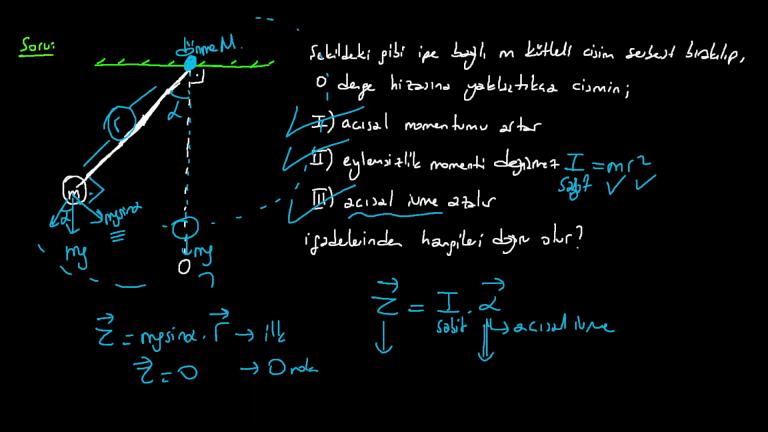 Soru:
dönme M.
Şekildeki gibi ipe bağlı m kütleli cisim serbest bırakılıp,
O denge hizasına yaklaştıkça cismin;
I) açısal momentumu artar
II) eylemsizlik momenti değişmez I = mr²
sabit
III) açısal ivme azalır
ifadelerinden hangileri doğru olur?
r
α
m
α
mgsinα
mg
mg
O
τ = I . α
sabit
açısal ivme
τ = mgsinα . r → ilk
τ = 0 → O nda